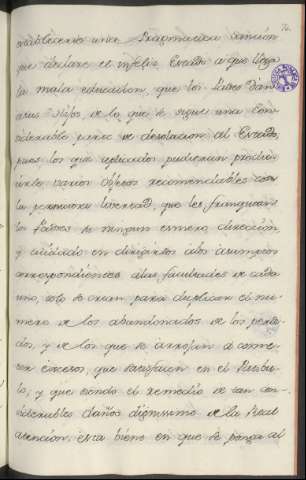 establecerse una Pragmatica Sancion
que declare el infeliz Estado a que llega
la mala educacion, que los Padres dan
a sus Hijos de lo que se sigue una con
siderable parte de desolacion al Estado,
pues los que aplicados pudieran produ
cirle varios objetos recomendables con
la perniciosa livertad que les franquean
los Padres de ningun esmero, direccion
y cuidado en dirigirlos a los asumptos
correspondientes a las facultades de cada
uno, solo se crian para duplicar el nu
mero de los abandonados de los perdi
dos, y de los que se arrojan a come
ter excesos, que satisfacen en el Patibu
lo, y que siendo el remedio de tan con
siderables daños dignisimo de la Real
atencion, esta bien en que se ponga al